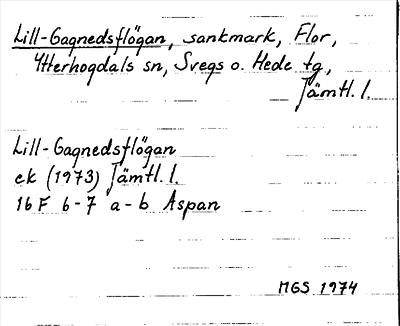 Lill-Gagnedsflögan, sankmark, Flor,
Ytterhogdals sn, Svegs o. Hede tg,
Jämtl. l.
Lill-Gagnedsflögan
ek (1973) Jämtl. l.
16 F 6-7 a-b Aspan
MGS 1974